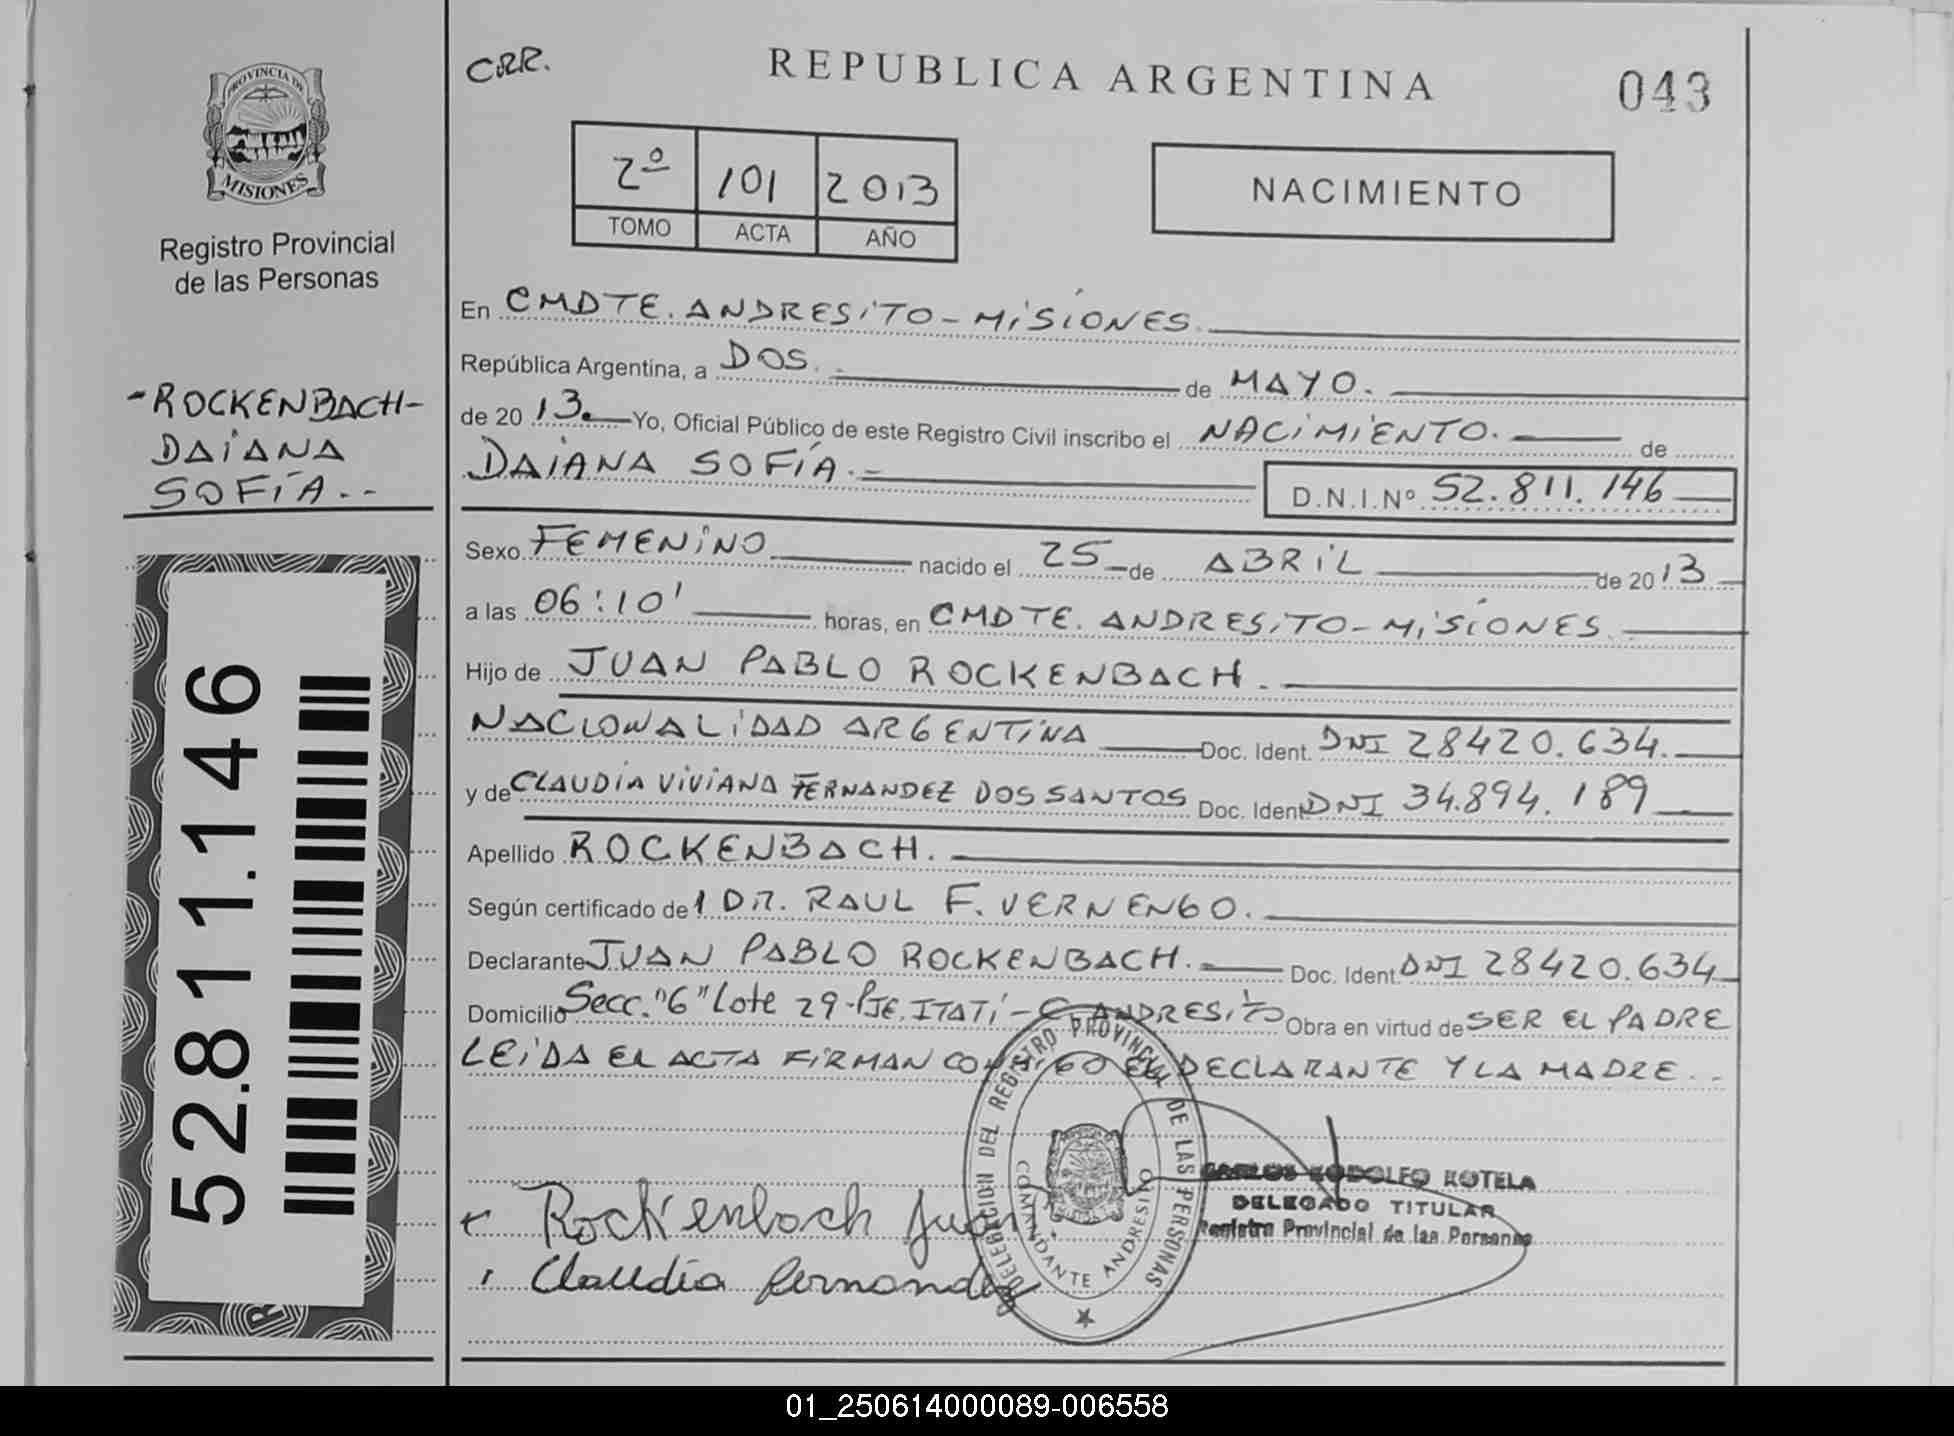 PROVINCIA DE
MISIONES
Registro Provincial
de las Personas
-ROCKENBACH-
DAIANA
SOFÍA.--
52.811.146
CRR.
REPUBLICA ARGENTINA
043
2º 101 2013
TOMO ACTA AÑO
NACIMIENTO
En CMDTE. ANDRESITO - MISIONES.
República Argentina, a DOS. de MAYO.
de 20 13. Yo, Oficial Público de este Registro Civil inscribo el NACIMIENTO. de
DAIANA SOFÍA.- D.N.I.Nº 52.811.146
Sexo FEMENINO nacido el 25 de ABRIL de 20 13
a las 06:10' horas, en CMDTE. ANDRESITO - MISIONES.
Hijo de JUAN PABLO ROCKENBACH.
NACIONALIDAD ARGENTINA Doc. Ident. DNI 28420.634.
y de CLAUDIA VIVIANA FERNANDEZ DOS SANTOS Doc. Ident DNI 34.894.189
Apellido ROCKENBACH.
Según certificado de l DR. RAUL F. VERNENGO.
Declarante JUAN PABLO ROCKENBACH. Doc. Ident. DNI 28420.634
Domicilio Secc. "6" Lote 29-PJE. ITATÍ - C. ANDRESITO Obra en virtud de SER EL PADRE
LEIDA EL ACTA FIRMAN CONMIGO EL DECLARANTE Y LA MADRE..
DELEGACION DEL REGISTRO PROVINCIAL DE LAS PERSONAS
COMANDANTE ANDRESITO
CARLOS RODOLFO KOTELA
DELEGADO TITULAR
Registro Provincial de las Personas
Rockenbach Juan
Claudia Fernandez
01_250614000089-006558